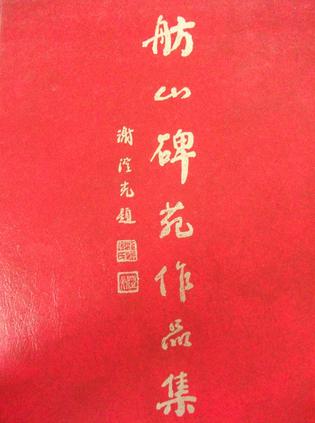 舫山碑苑作品集
谢澄光题